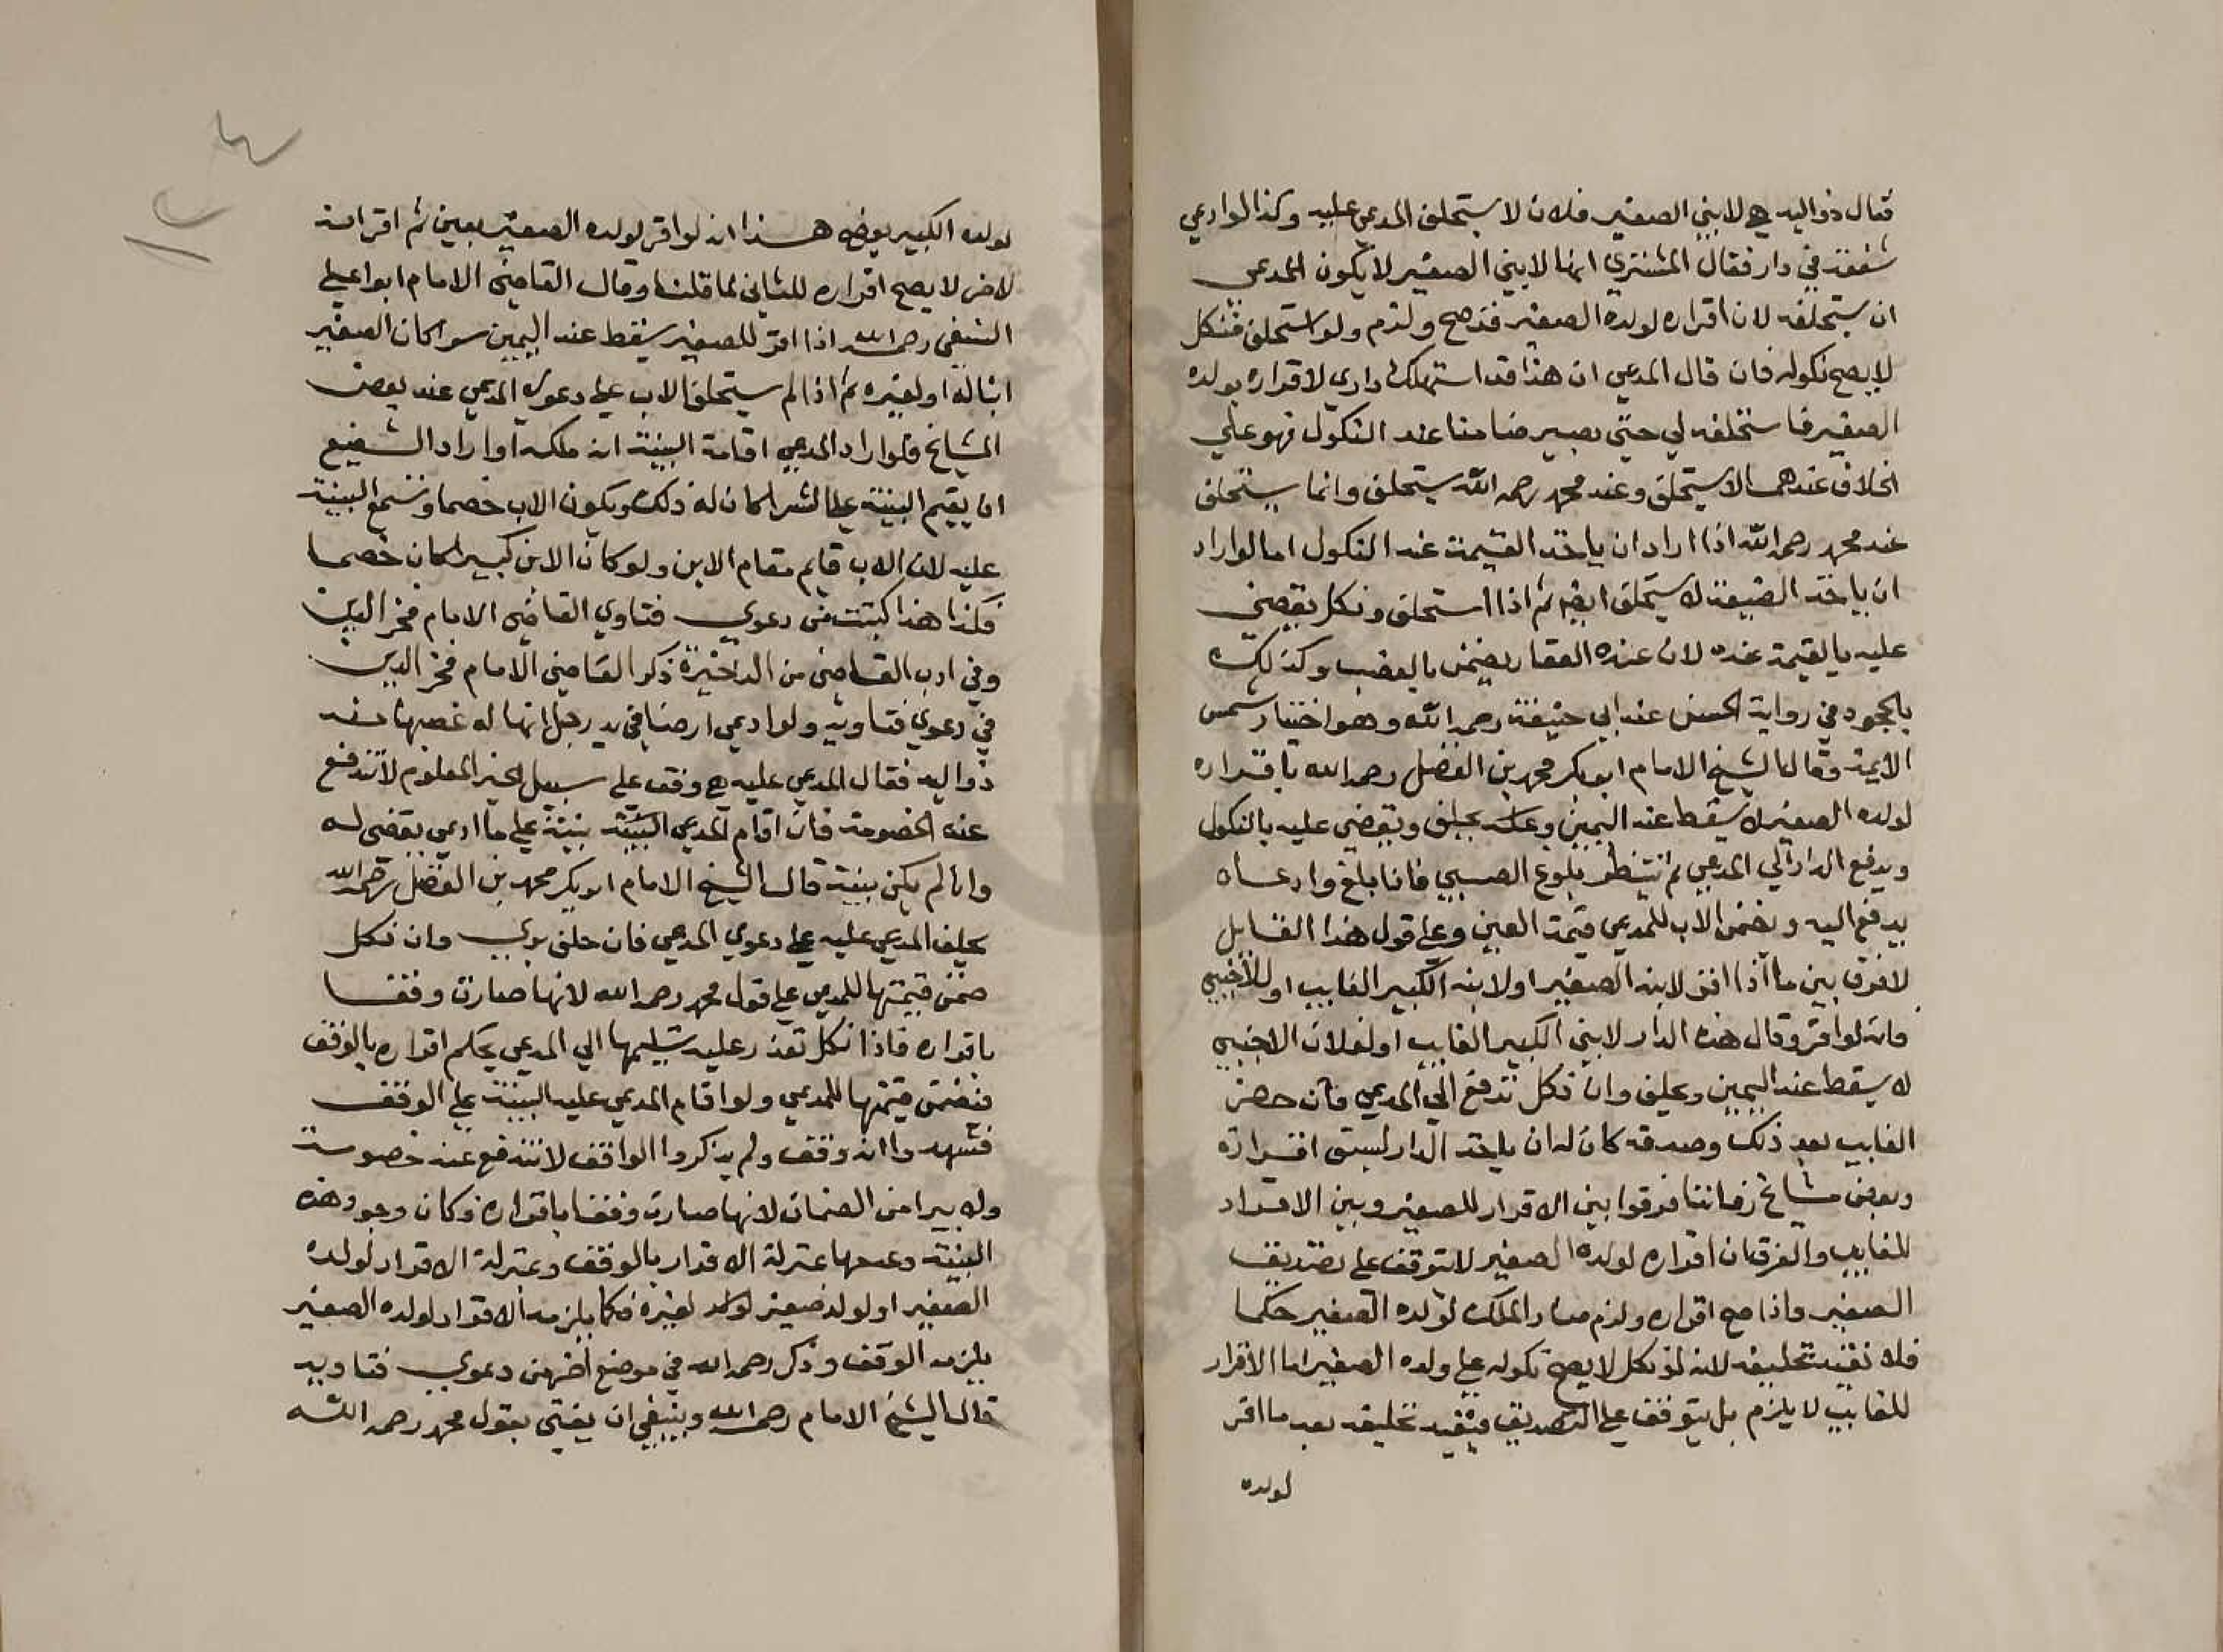 فقال ذو اليد هي لابني الصغير فلان لا يستحلف المدعي عليه وكذا لو ادعي
شفعة في دار فقال المشتري انها لابني الصغير لا يكون للمدعي
ان يستحلفه لان اقراره لولده الصغير قد صح ولزم ولو استحلف فنكل
لا يصح نكوله فان قال المدعي ان هذا قد استهلك داري لاقراره بولده
الصغير فاستحلفه لي حتى يصير ضامنا عند النكول فهو علي
الخلاف عندهما لا يستحلف وعند محمد رحمه الله يستحلف وانما يستحلف
عند محمد رحمه الله اذا اراد ان ياخذ القيمة عند النكول اما لو اراد
ان ياخذ الضيعة لا يستحلف ايضا ثم اذا استحلف ونكل يقضي
عليه بالقيمة عنده لان عنده العقار يضمن بالغصب وكذلك
بالجحود في رواية الحسن عند ابي حنيفة رحمه الله وهو اختيار شمس
الايمة وقال الشيخ الامام ابو بكر محمد بن الفضل رحمه الله باقراره
لولده الصغير لا يسقط عند اليمين وعليه يحلف ويقضي عليه بالنكول
ويدفع الدار الي المدعي ثم ينتظر بلوغ الصبي فاذا بلغ وادعاه
يدفع اليه ويضمن الاب للمدعي قيمة العين وعلي قول هذا القايل
لا فرق بين ما اذا اقر لابنه الصغير او لابنه الكبير الغايب او للاجنبي
فانه لو اقر وقال هذه الدار لابني الكبير الغايب او لفلان الاجنبي
لا يسقط عند اليمين ويحلف وان نكل تدفع الي المدعي فان حضر
الغايب بعد ذلك وصدقه كان له ان ياخذ الدار لسبق اقراره
وبعض مشايخ زماننا فرقوا بين الاقرار للصغير وبين الاقرار
للغايب والفرق ان اقراره لولده الصغير لا يتوقف علي تصديق
الصغير واذا صح اقراره ولزم صار الملك لولده الصغير حكما
فلا تفيد تحليفه لانه لو نكل لا يصح نكوله علي ولده الصغير اما الاقرار
للغايب لا يلزم بل يتوقف علي التصديق فيفيد تحليفه بعد ما اقر
لولده
لولده الكبير يوضحه هذا انه لو اقر لولده الصغير بعين ثم اقر انه
لاخر لا يصح اقراره للثاني لما قلنا وقال القاضي الامام ابو علي
النسفي رحمه الله اذا اقر للصغير يسقط عند اليمين سوا كان الصغير
ابنا له او لغيره ثم اذا لم يستحلف الاب علي دعوي المدعي عند بعض
المشايخ فلو اراد المدعي اقامة البينة انه ملكه او اراد الشفيع
ان يقيم البينة علي الشرا كان له ذلك ويكون الاب خصما وتسمع البينة
عليه لان الاب قايم مقام الابن ولو كان الابن كبيرا كان خصما
فكذا هذا كتبت من دعوي فتاوي القاضي الامام فخر الدين
وفي ادب القاضي من الذخيرة ذكر القاضي الامام فخر الدين
في دعوي فتاويه ولو ادعي ارضا في يد رجل انها له غصبها منه
ذو اليد فقال المدعي عليه هي وقف علي سبيل الخير المعلوم لا تندفع
عنه الخصومة فان اقام المدعي البينة بينة علي ما ادعي يقضي له
وان لم يكن بينة قال الشيخ الامام ابو بكر محمد بن الفضل رحمه الله
يحلف المدعي عليه علي دعوي المدعي فان حلف بري وان نكل
ضمن قيمتها للمدعي علي قول محمد رحمه الله لانها صارت وقفا
باقراره فاذا نكل تعذر عليه تسليمها الي المدعي بحكم اقراره بالوقف
فيضمن قيمتها للمدعي ولو اقام المدعي عليه البينة علي الوقف
فشهدوا انه وقف ولم يذكروا الواقف لا تندفع عنه خصومته
ولا يبرا من الضمان لانها صارت وقفا باقراره فكان وجود هذه
البينة وعدمها بمنزلة الاقرار بالوقف وبمنزلة الاقرار لولده
الصغير او لولد صغير لولد لغيره فكما يلزمه الاقرار لولده الصغير
يلزمه الوقف وذكر رحمه الله في موضع اخر من دعوي فتاويه
قال الشيخ الامام رحمه الله وينبغي ان يفتي بقول محمد رحمه الله